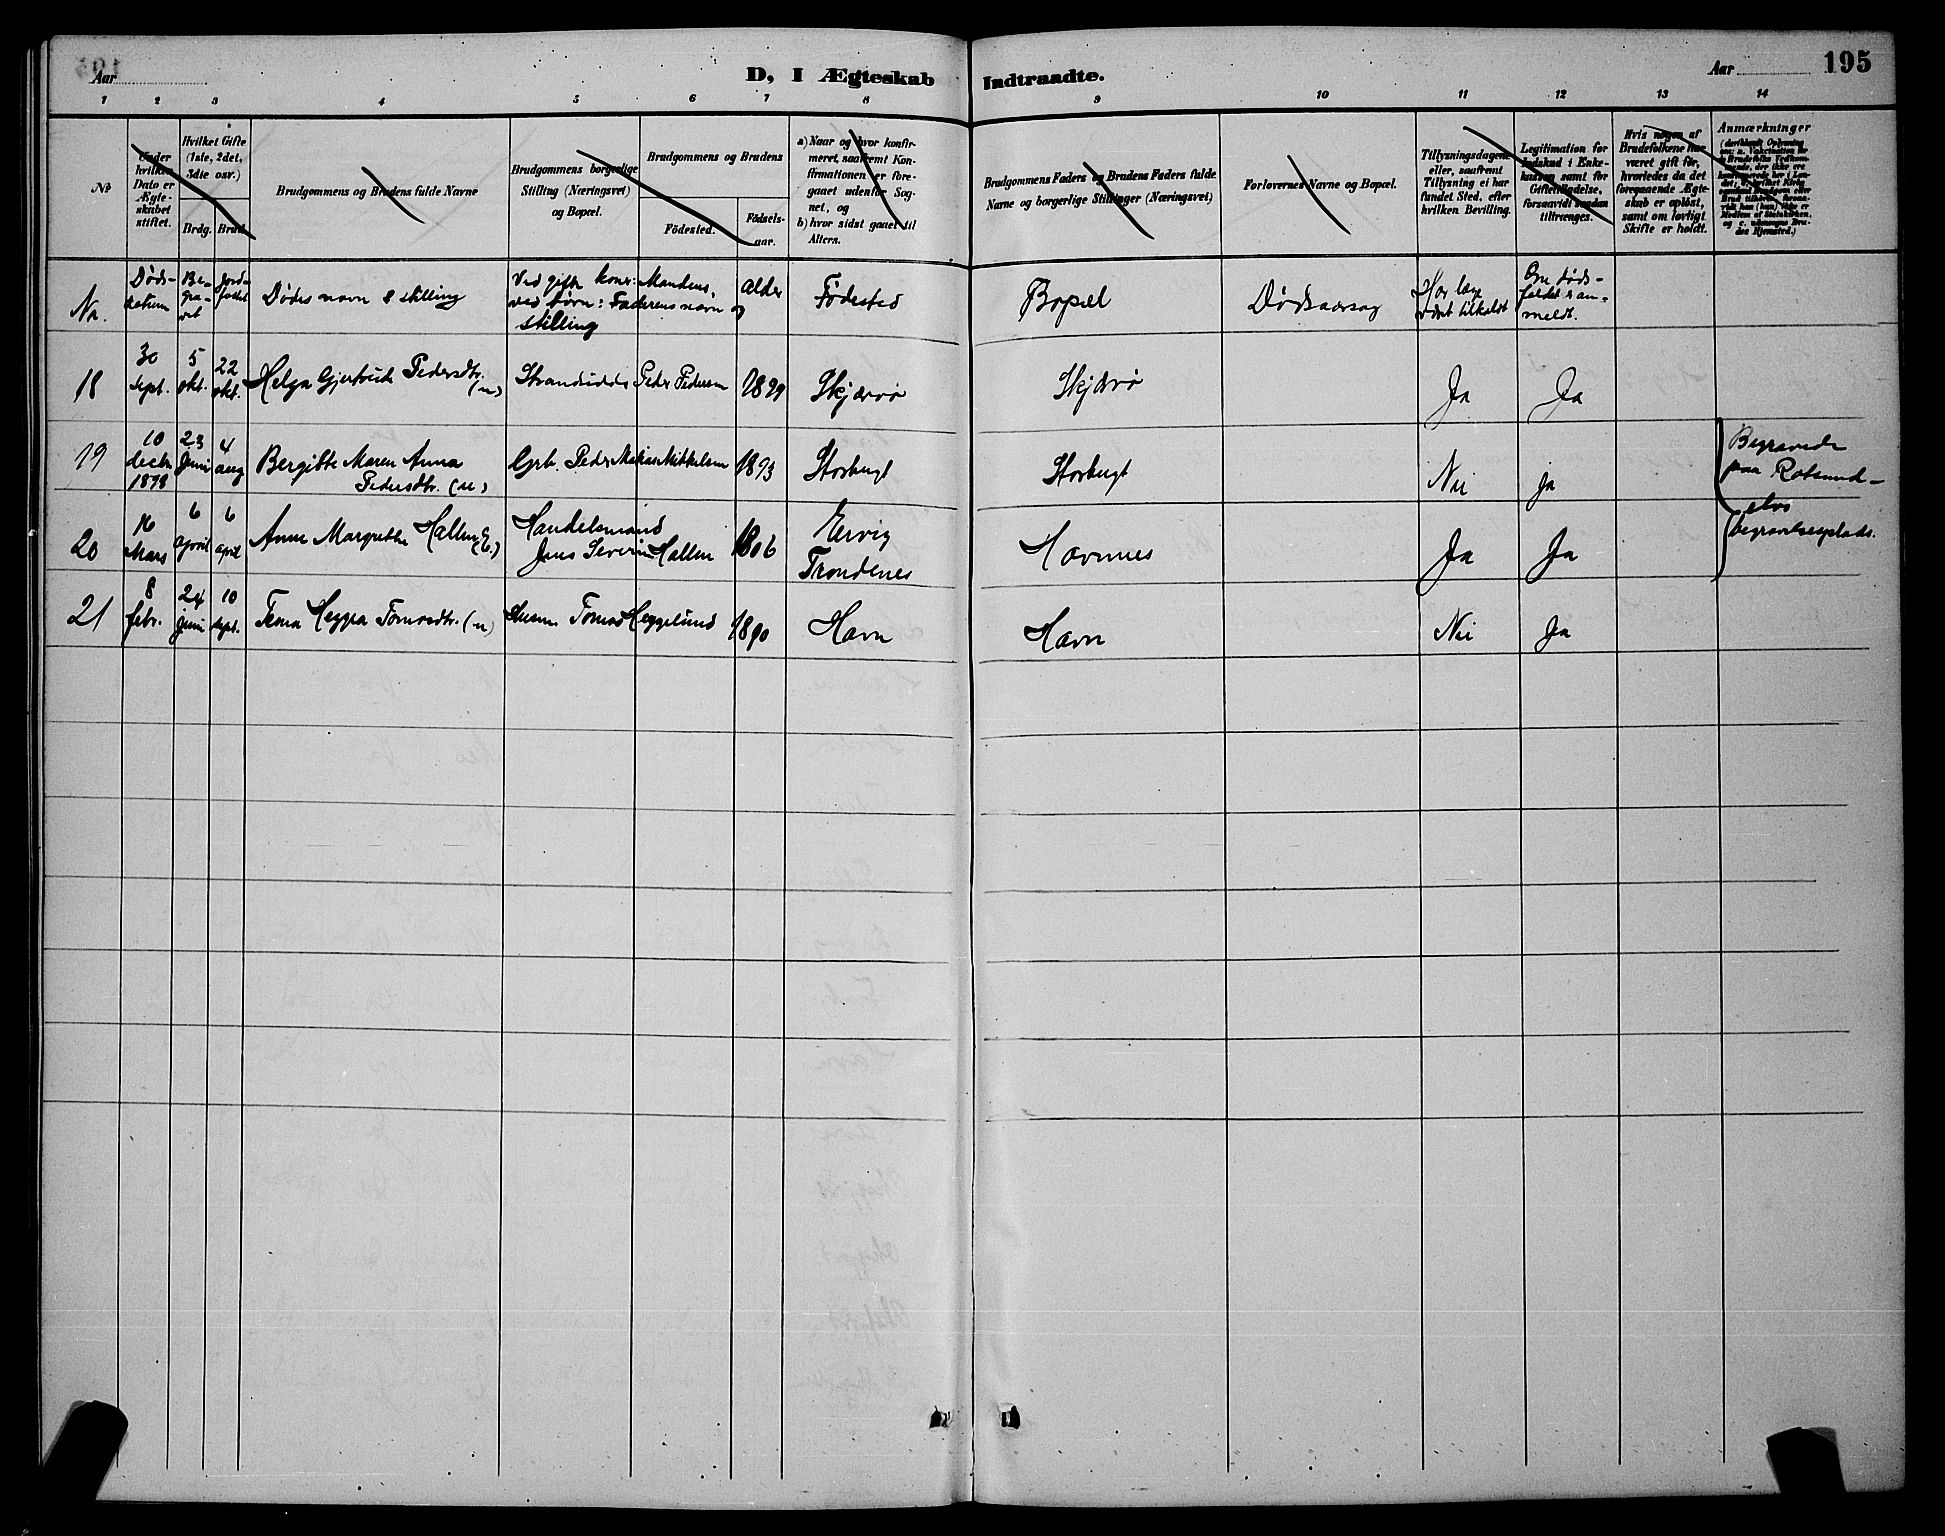 Aar
D, I Ægteskab
Indtraadte.
Aar
195
1 2 3 4 5 6 7 8 9 10 11 12 13 14
No
Under
hvilken
Dato er
Ægte-
skabet
stiftet.
Hvilket Gifte
(1ste, 2det,
3die osv.)
Brdg.
Brud.
Brudgommens og Brudens fulde Navne
Brudgommens borgerlige
Stilling (Næringsvei)
og Bopæl.
Brudgommens og Brudens
Födested.
Födsels-
aar.
a) Naar og hvor konfir-
meret, saafremt Kon-
firmationen er fore-
gaaet udenfor Sog-
net, og
b) hvor sidst gaaet til
Alters.
Brudgommens Faders og Brudens Faders fulde
Navne og borgerlige Stillinger (Næringsvei)
Forlovernes Navne og Bopæl.
Tillysningsdagene
eller, saafremt
Tillysning ei har
fundet Sted, efter
hvilken Bevilling.
Legitimation for
Indskud i Enke-
kassen samt for
Giftetilladelse,
forsaavidt saadan
tiltrænges.
Hvis nogen af
Brudefolkene har
været gift för,
hvorledes da det
foregaaende Ægte-
skab er oplöst,
samt om lovligt
Skifte er holdt.
Anmærkninger
No.
Døds-
datum
Be-
gra-
vet
Jord-
fæstet
Dødes navn & stilling
Ved gifte koner: Mandens,
ved børn: Faderens navn og
stilling
alder
Fødested
Bopæl
Dødsaarsag
Har læge
været tilkaldt
Om døds-
faldet er an-
meldt.
18
30
sept.
5
okt.
22
okt.
Helga Gjertrude Pedersdtr.
(u)
Strandsidder Peder Pedersen
1899
Skjærvø
Skjærvø
Ja
Ja
19
10
decbr
1898
23
Juni
4
aug
Bergitte Maren Anna
Pedersdtr. (u)
Grb. Peder Mathias Mikkelsen
1893
Storbugt
Storbugt
Nei
ja
Begravede
paa Rotsund-
elvs
begravelsesplads.
20
16
Mars
6
april
6
april
Anne Margrethe Hallen (E.)
Handelsmand
Jens Severin Hallen
1806
Ervig
Trondenes
Havnnes
Ja
Ja
21
8
febr.
24
juni
10
sept.
Hegga Tomasdtr. (u)
Tomas Heggelund
1890
Havn
Havn
Nei
Ja